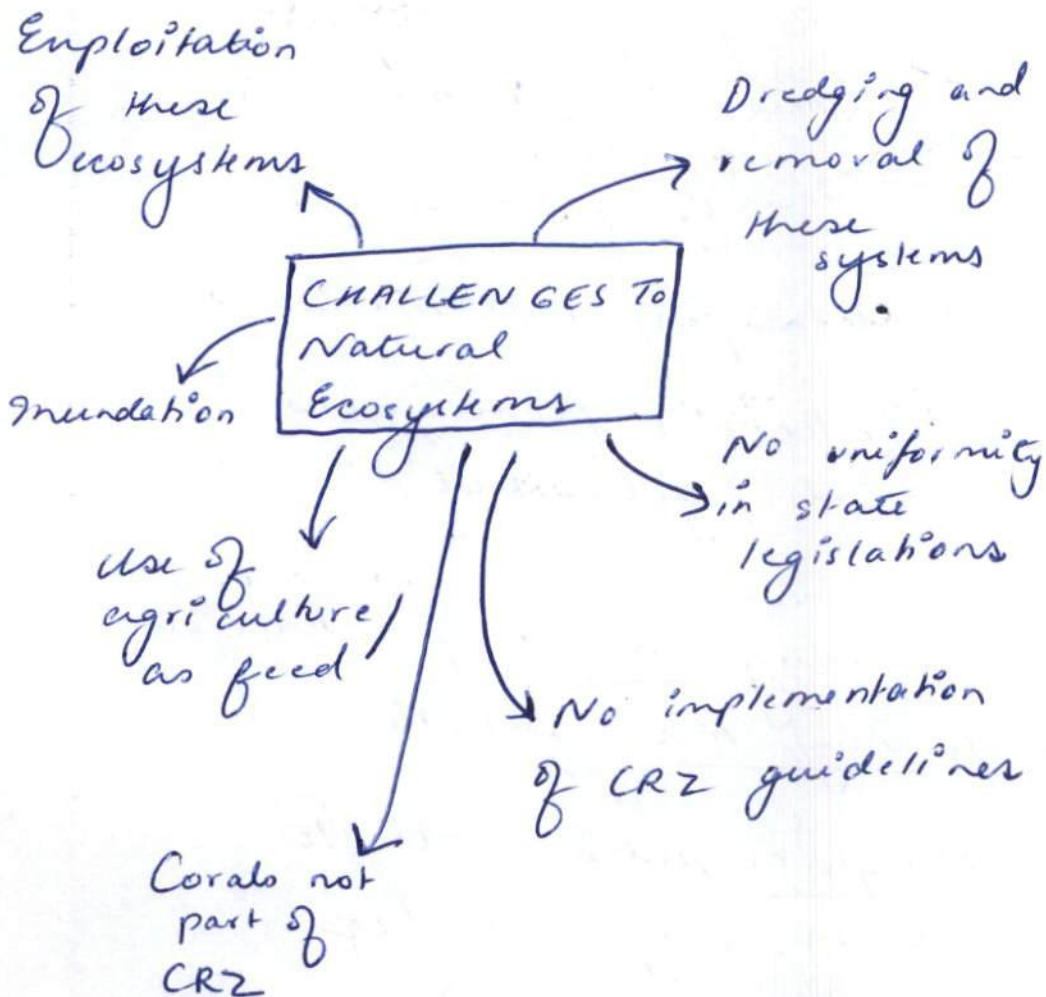 Exploitation
of these
ecosystems
Dredging and
removal of
these
systems
CHALLENGES To
Natural
Ecosystems
Inundation
No uniformity
in state
legislations
Use of
agriculture/
as feed
No implementation
of CRZ guidelines
Corals not
part of
CRZ